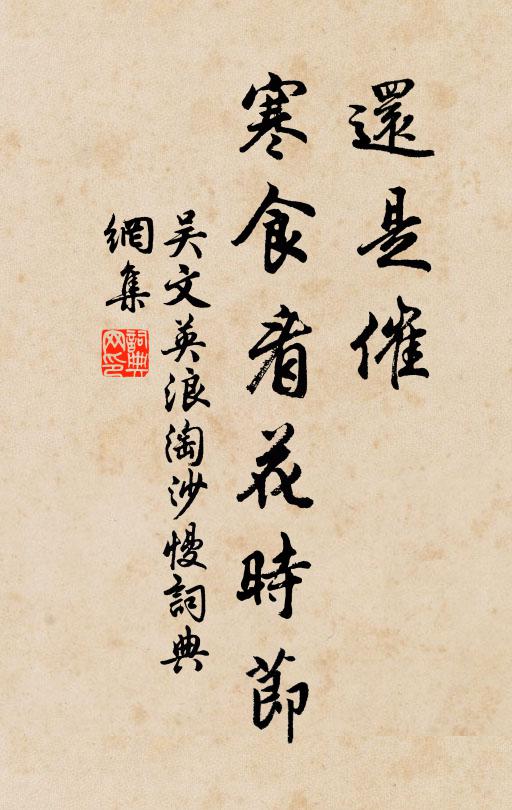 還是催
寒食看花時節
吴文英浪淘沙慢詞典
網集
詞典网印